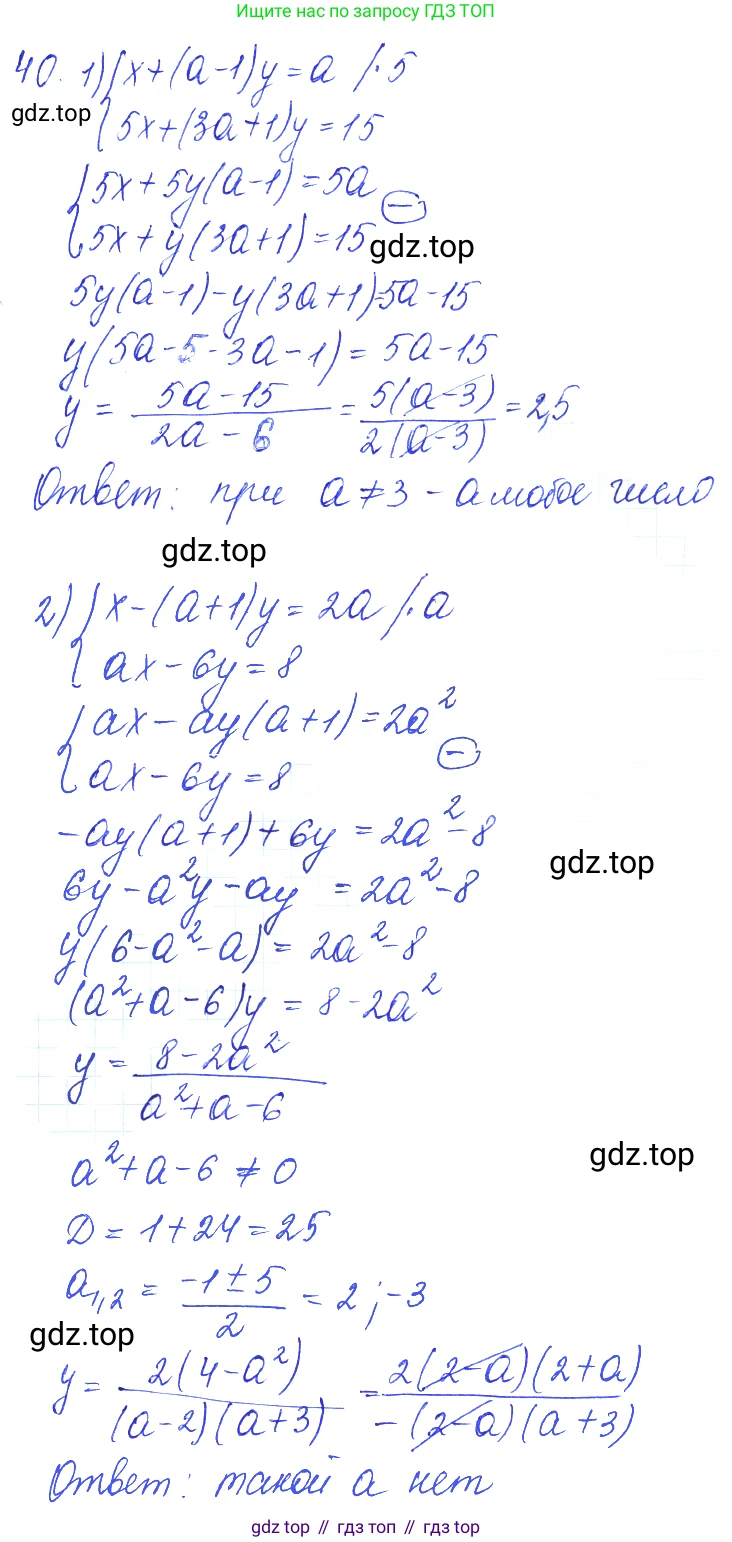 Ищите нас по запросу ГДЗ ТОП
40. 1) { x+(a-1)y=a /·5
gdz.top
5x+(3a+1)y=15
{ 5x+5y(a-1)=5a
5x+y(3a+1)=15 (-)
gdz.top
5y(a-1)-y(3a+1)=5a-15
y(5a-5-3a-1)=5a-15
y = (5a-15)/(2a-6) = 5(a-3)/2(a-3) = 2,5
Ответ: при a≠3 - a любое число
gdz.top
2) { x-(a+1)y=2a /·a
ax-6y=8
{ ax-ay(a+1)=2a²
ax-6y=8 (-)
-ay(a+1)+6y=2a²-8
gdz.top
6y-a²y-ay=2a²-8
y(6-a²-a)=2a²-8
(a²+a-6)y=8-2a²
y = (8-2a²)/(a²+a-6)
a²+a-6≠0
gdz.top
D=1+24=25
a₁,₂ = (-1±5)/2 = 2; -3
gdz.top
y = 2(4-a²)/(a-2)(a+3) = 2(2-a)(2+a)/-(2-a)(a+3)
Ответ: такой a нет
gdz top // гдз топ // gdz.top